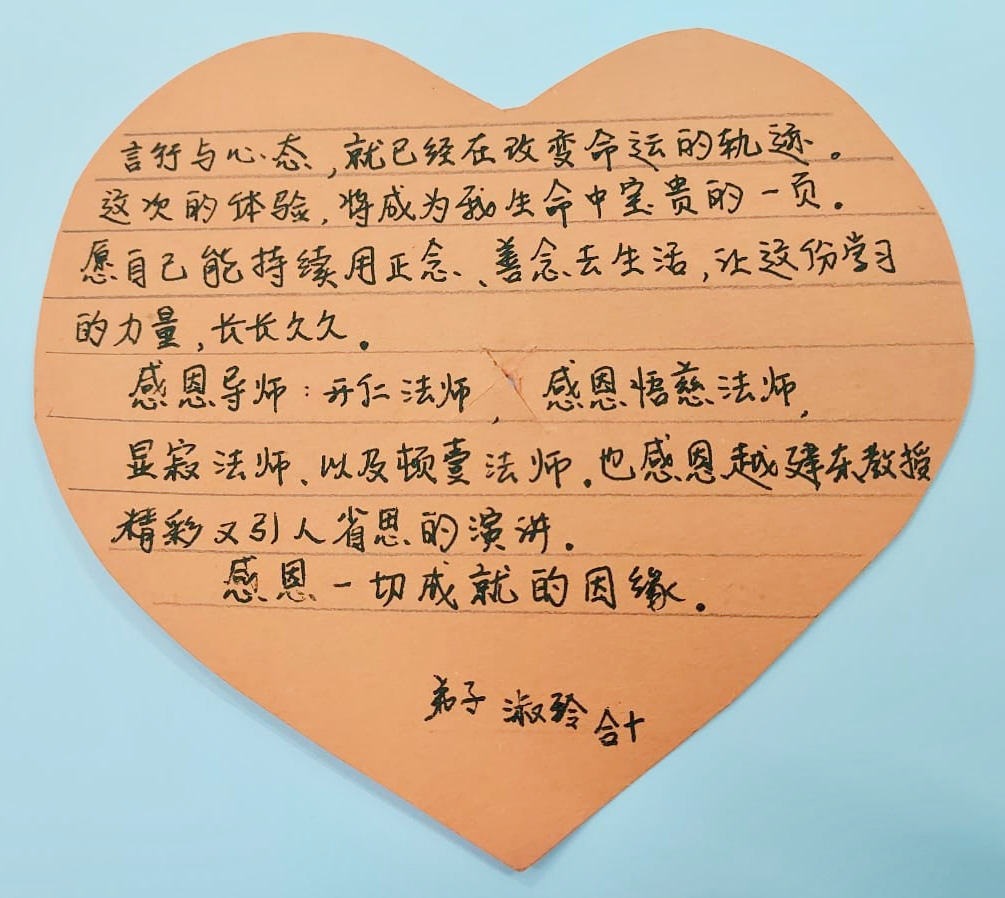 言行与心态,就已经在改变命运的轨迹。
这次的体验,将成为我生命中宝贵的一页。
愿自己能持续用正念、善念去生活,让这份学习
的力量,长长久久。
感恩导师:开仁法师,感恩悟慈法师,
显寂法师、以及顿壹法师.也感恩越建东教授
精彩又引人省思的演讲.
感恩一切成就的因缘.
弟子淑玲合十